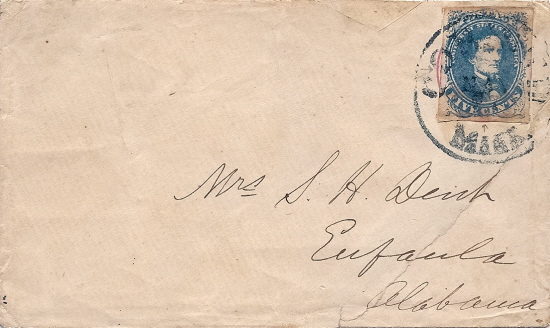 FIVE CENTS
Mrs S. H. Dent
Eufaula
Alabama